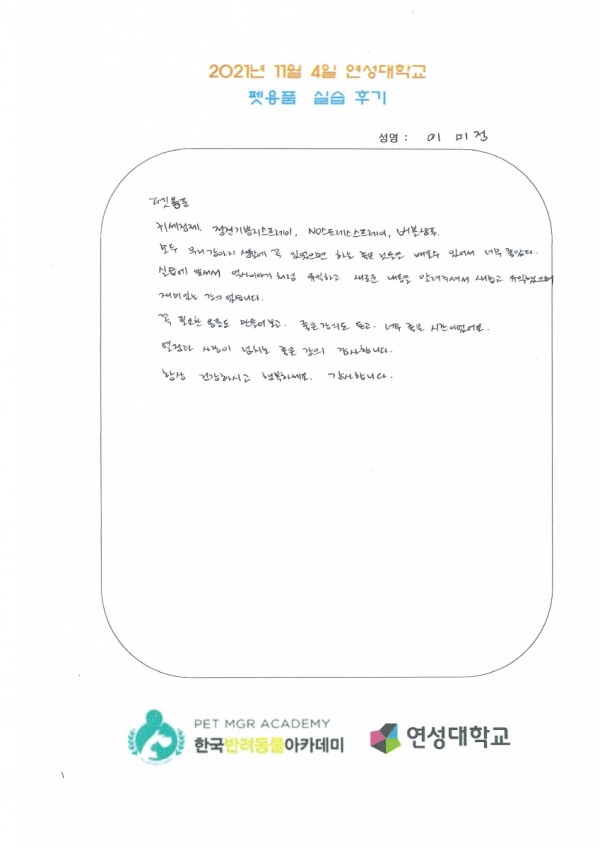 2021년 11월 4일 연성대학교
펫용품 실습 후기
성명 : 이 미 정
귀세정제, 정전기방지스프레이, NO스트레스스프레이, 버블샴푸.
모두 우리 강아지 생활에 꼭 있었으면 하는 좋은 것들을 배울수 있어서 너무 좋았다.
실습에 앞서서 역사이야기처럼 유익하고 새로운 내용을 알려주셔서 새롭고 유익했으며
재미있는 강의 였습니다.
꼭 필요한 용품도 만들어보고. 좋은강의도 듣고. 너무 좋은 시간이였어요.
열정과 사랑이 넘치는 좋은 강의 감사합니다.
항상 건강하시고 행복하세요. 감사합니다.
PET MGR ACADEMY
한국반려동물아카데미
연성대학교